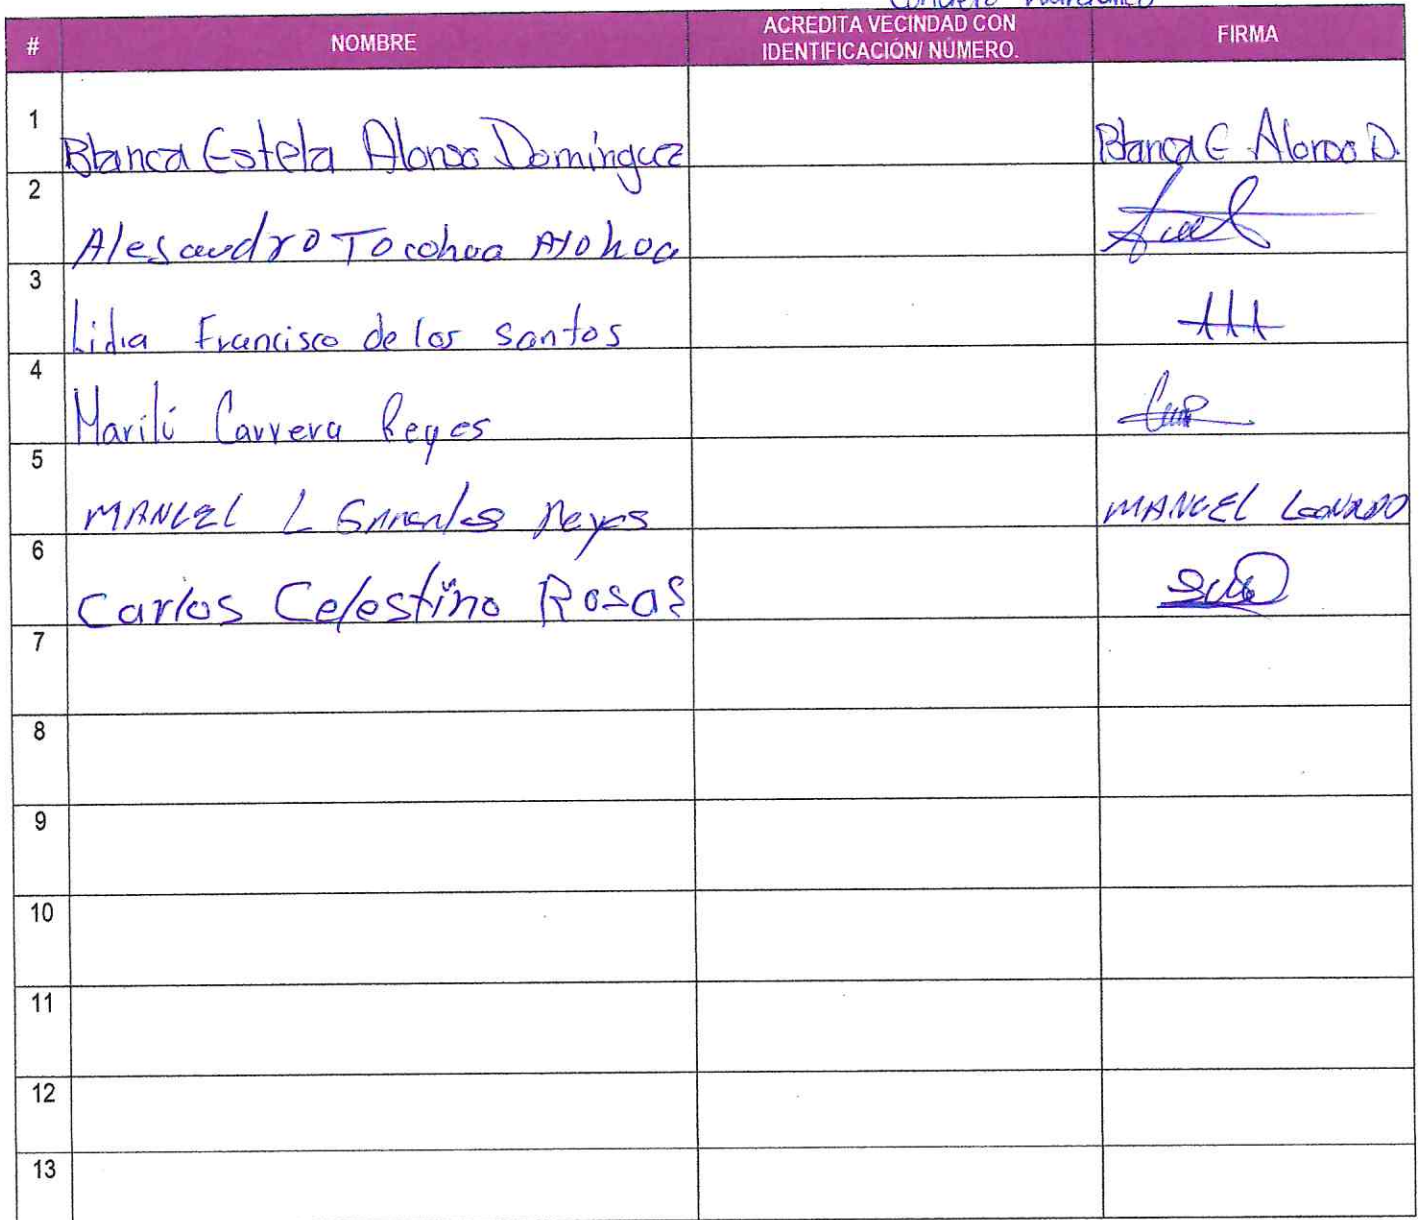 # NOMBRE ACREDITA VECINDAD CON IDENTIFICACIÓN/ NÚMERO. FIRMA
1 Blanca Estela Alonso Domínguez Blanca E Alonso D.
2 Alesandro Tocohua
3 Lidia Francisco de los santos
4 Marilú Carrera Reyes
5 MANUEL L Reyes MANUEL
6 Carlos Celestino Rosas
7
8
9
10
11
12
13